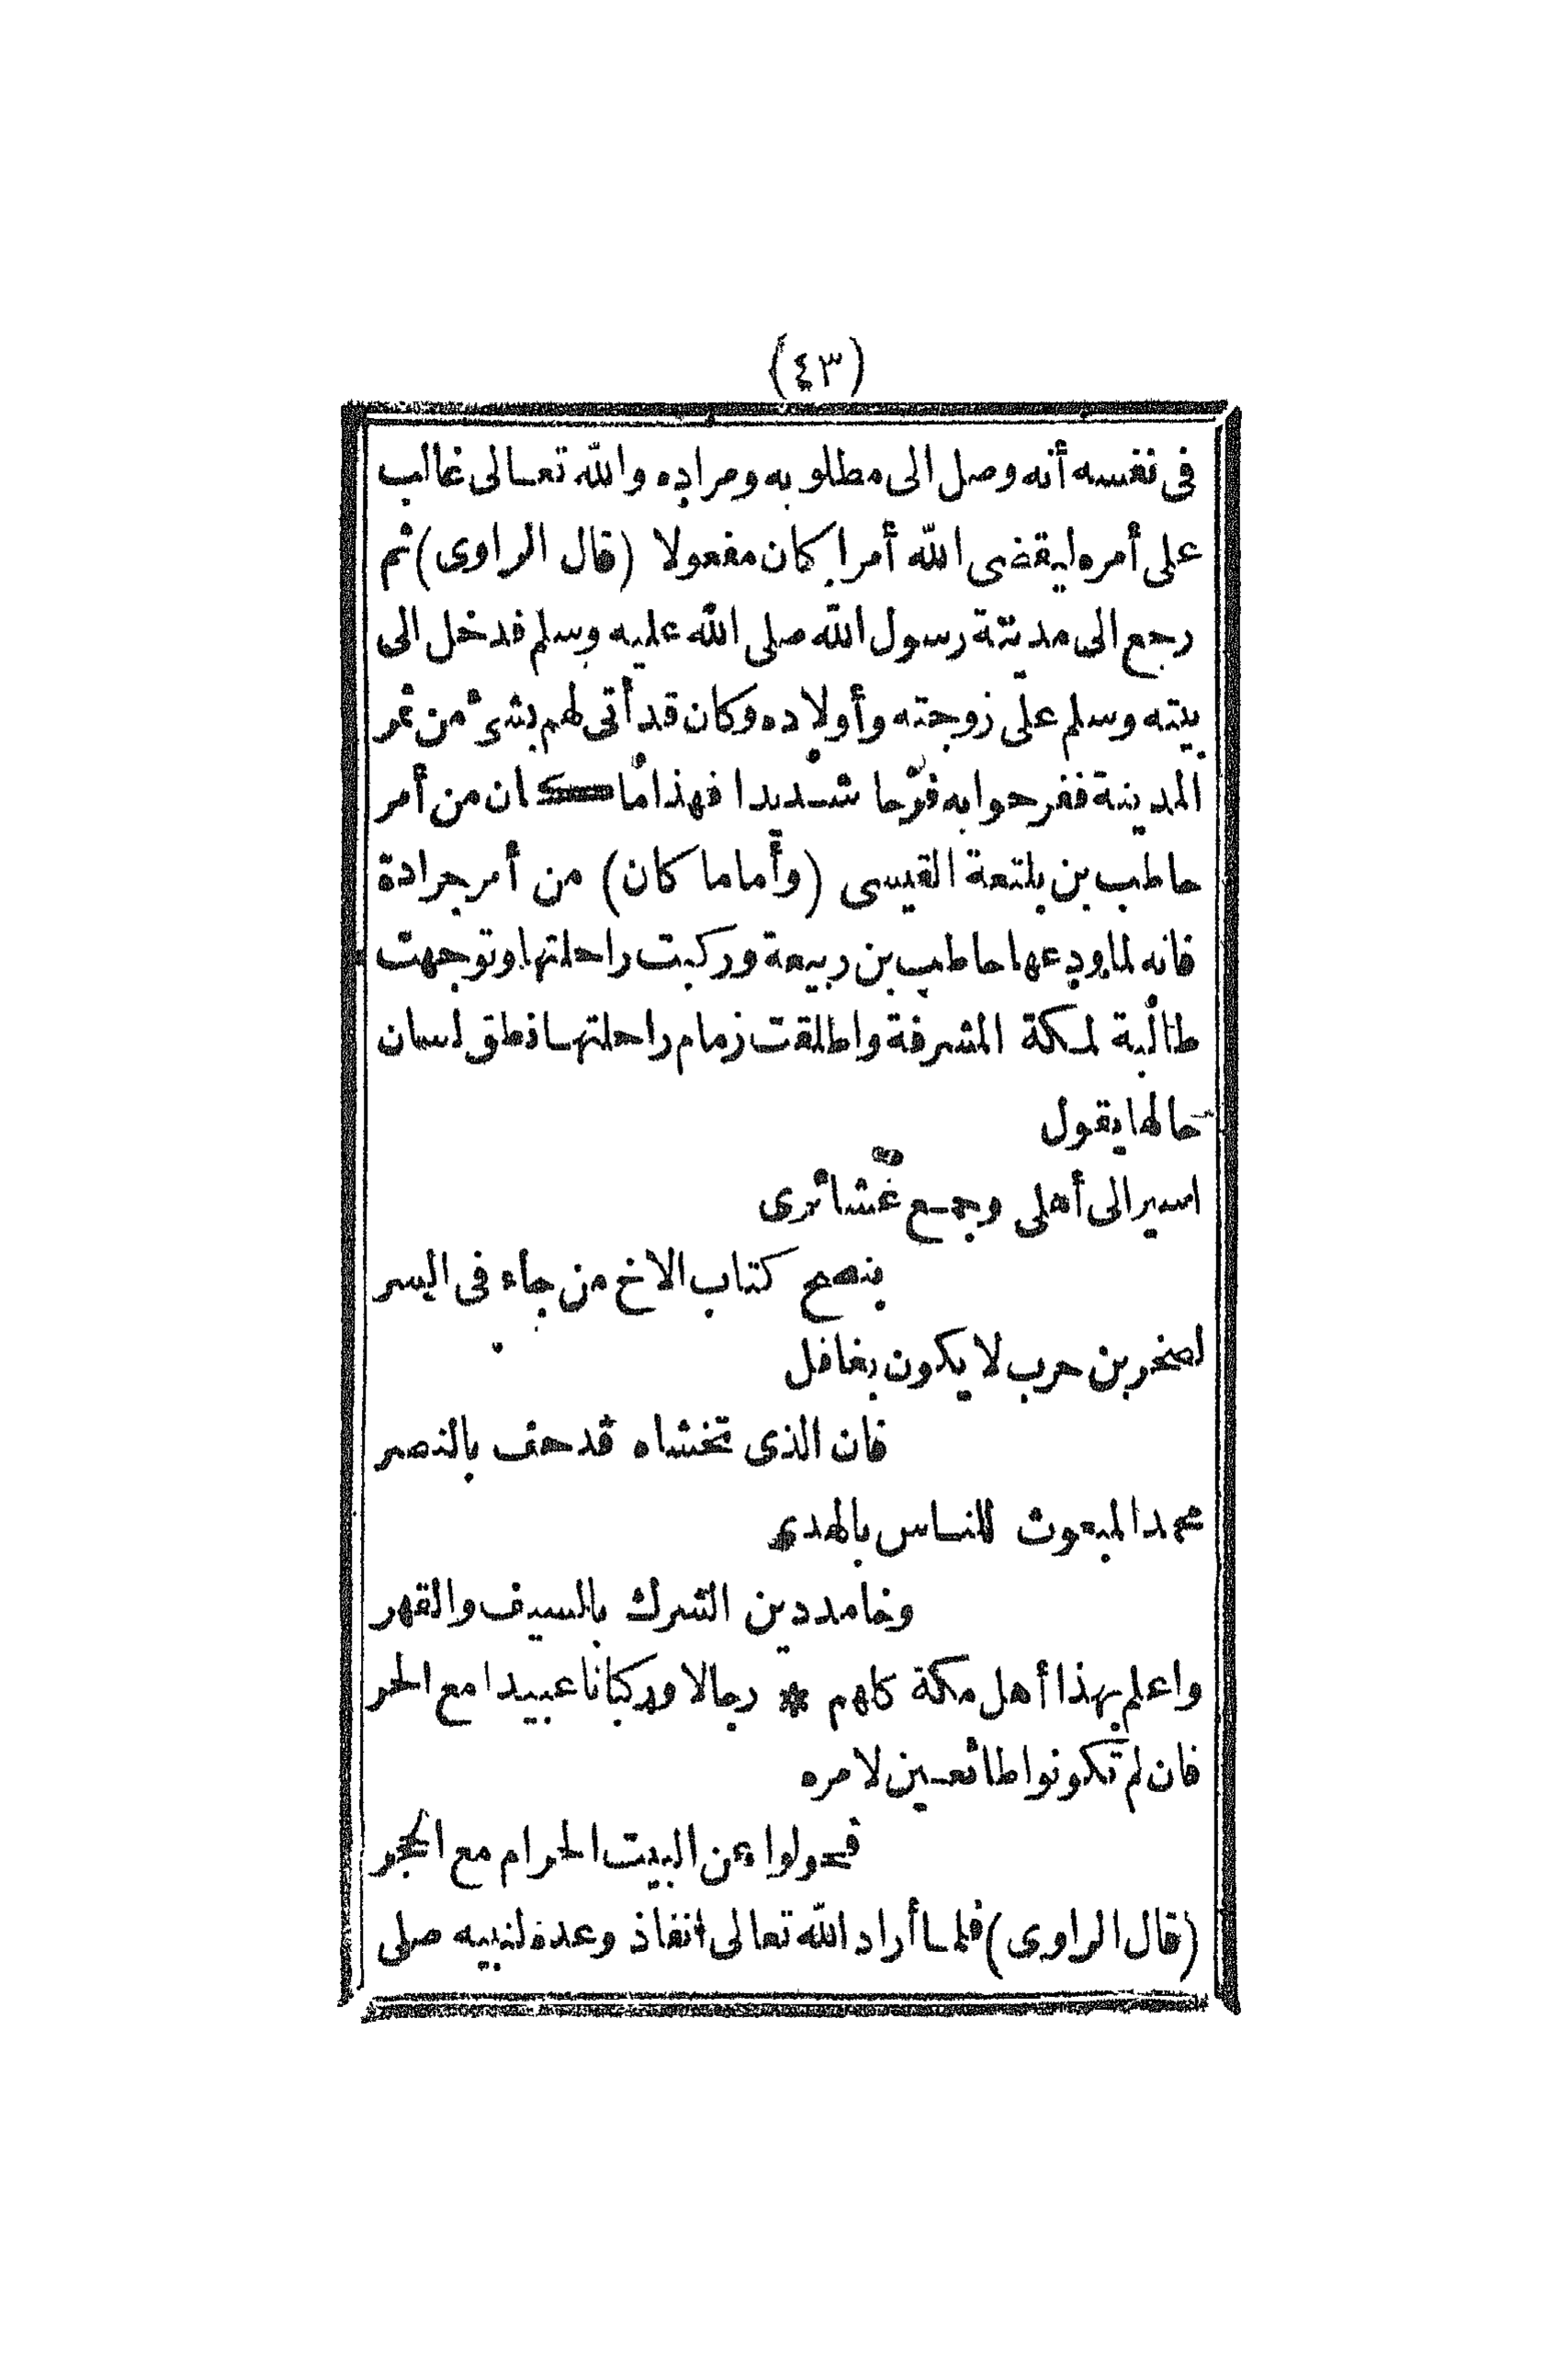 (٤٣)
فى نفسه أنه وصل الى مطلوبه ومراده والله تعالى غالب
على أمره ليقضى الله أمرا كان مفعولا (قال الراوى) ثم
رجع الى مدينة رسول الله صلى الله عليه وسلم فدخل الى
بيته وسلم على زوجته وأولاده وكان قد أتى لهم بشئ من تمر
المدينة ففرحوا به فرحا شديدا فهذا ما كان من أمر
حاطب بن بلتعة القيسى (وأما ما كان) من أمر جرادة
فانه لما ودعها حاطب بن ربيعة وركبت راحلتها وتوجهت
طالبة لمكة المشرفة واطلقت زمام راحلتها فنطق لسان
حالها يقول
اسير الى أهلى وجمع عشائرى
بنصح كتاب الاخ من جاء فى اليسر
لصخر بن حرب لا يكون بغافل
فان الذى تخشاه قد حف بالنصر
محمد المبعوث للناس بالهدى
وخامد دين الشرك بالسيف والقهر
واعلم بهذا أهل مكة كلهم * رجالا وركبانا عبيدا مع الحر
فان لم تكونوا طائعين لامره
فحولوا عن البيت الحرام مع الحجر
(قال الراوى) فلما أراد الله تعالى انفاذ وعده لنبيه صلى